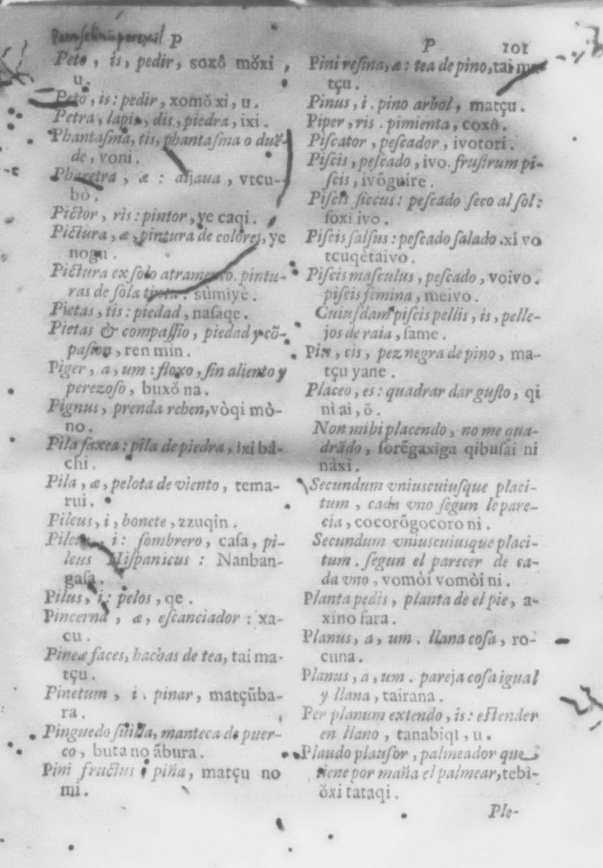 P
Peto, is, pedir, soxǒ mǒxi,
u.
Peto, is: pedir, xomǒ xi, u.
Petra, lapis, dis, piedra, ixi.
Phantasma, tis, phantasma o
de, voni.
Pharetra, æ: aljaua, vtcu-
bo.
Pictor, ris: pintor, ye caqi.
Pictura, æ, pintura de colores, ye
nogu.
Pictura ex solo atramento. pintu-
ras de sola tinta. sumiye.
Pietas, tis: piedad, nasaqe.
Pietas & compassio, piedad y cõ-
pasion, ren min.
Piger, a, um: floxo, sin aliento y
perezoso, buxǒ na.
Pignus, prenda rehen, vòqi mò-
no.
Pila saxea: pila de piedra, ixi bâ-
chi.
Pila, æ, pelota de viento, tema-
rui.
Pileus, i, bonete, zzuqin.
Pileus, i: sombrero, casa, pi-
leus Hispanicus: Nanban-
gasa.
Pilus, i: pelos, qe.
Pincerna, æ, escanciador: xa-
cu.
Pineæ faces, hachas de tea, tai ma-
tçu.
Pinetum, i. pinar, matçũba-
ra.
Pinguedo suilla, manteca de puer-
co, buta no ãbura.
Pini fructus: piña, matçu no
mi.
P 101
Pini resina, æ: tea de pino, tai
tçu.
Pinus, i. pino arbol, matçu.
Piper, ris. pimienta, coxô.
Piscator, pescador, ivotori.
Piscis, pescado, ivo. frustrum pi-
scis, ivõguire.
Piscis siccus: pescado seco al sol:
foxi ivo.
Piscis salsus: pescado salado. xi vo
tcuqetaivo.
Piscis masculus, pescado, voivo.
piscis femina, meivo.
Cuiusdam piscis pellis, is, pelle-
jos de raia, same.
Pix, cis, pez negra de pino, ma-
tçu yane.
Placeo, es: quadrar dar gusto, qi
ni ai, ô.
Non mihi placendo, no me qua-
drãdo, sorẽgaxiga qibusai ni
náxi.
Secundum vniuscuiusque placi-
tum, cada vno segun le pare-
cia, cocorõgocoro ni.
Secundum vniuscuiusque placi-
tum. segun el parecer de ca-
da vno, vomòi vomòi ni.
Planta pedis, planta de el pie, a-
xino fara.
Planus, a, um. llana cosa, ro-
cuna.
Planus, a, um. pareja cosa igual
y llana, tairana.
Per planum extendo, is: estender
en llano, tanabiqi, u.
Plaudo plausor, palmeador que
tiene por maña el palmear, tebi-
ǒxi tataqi.
Ple-